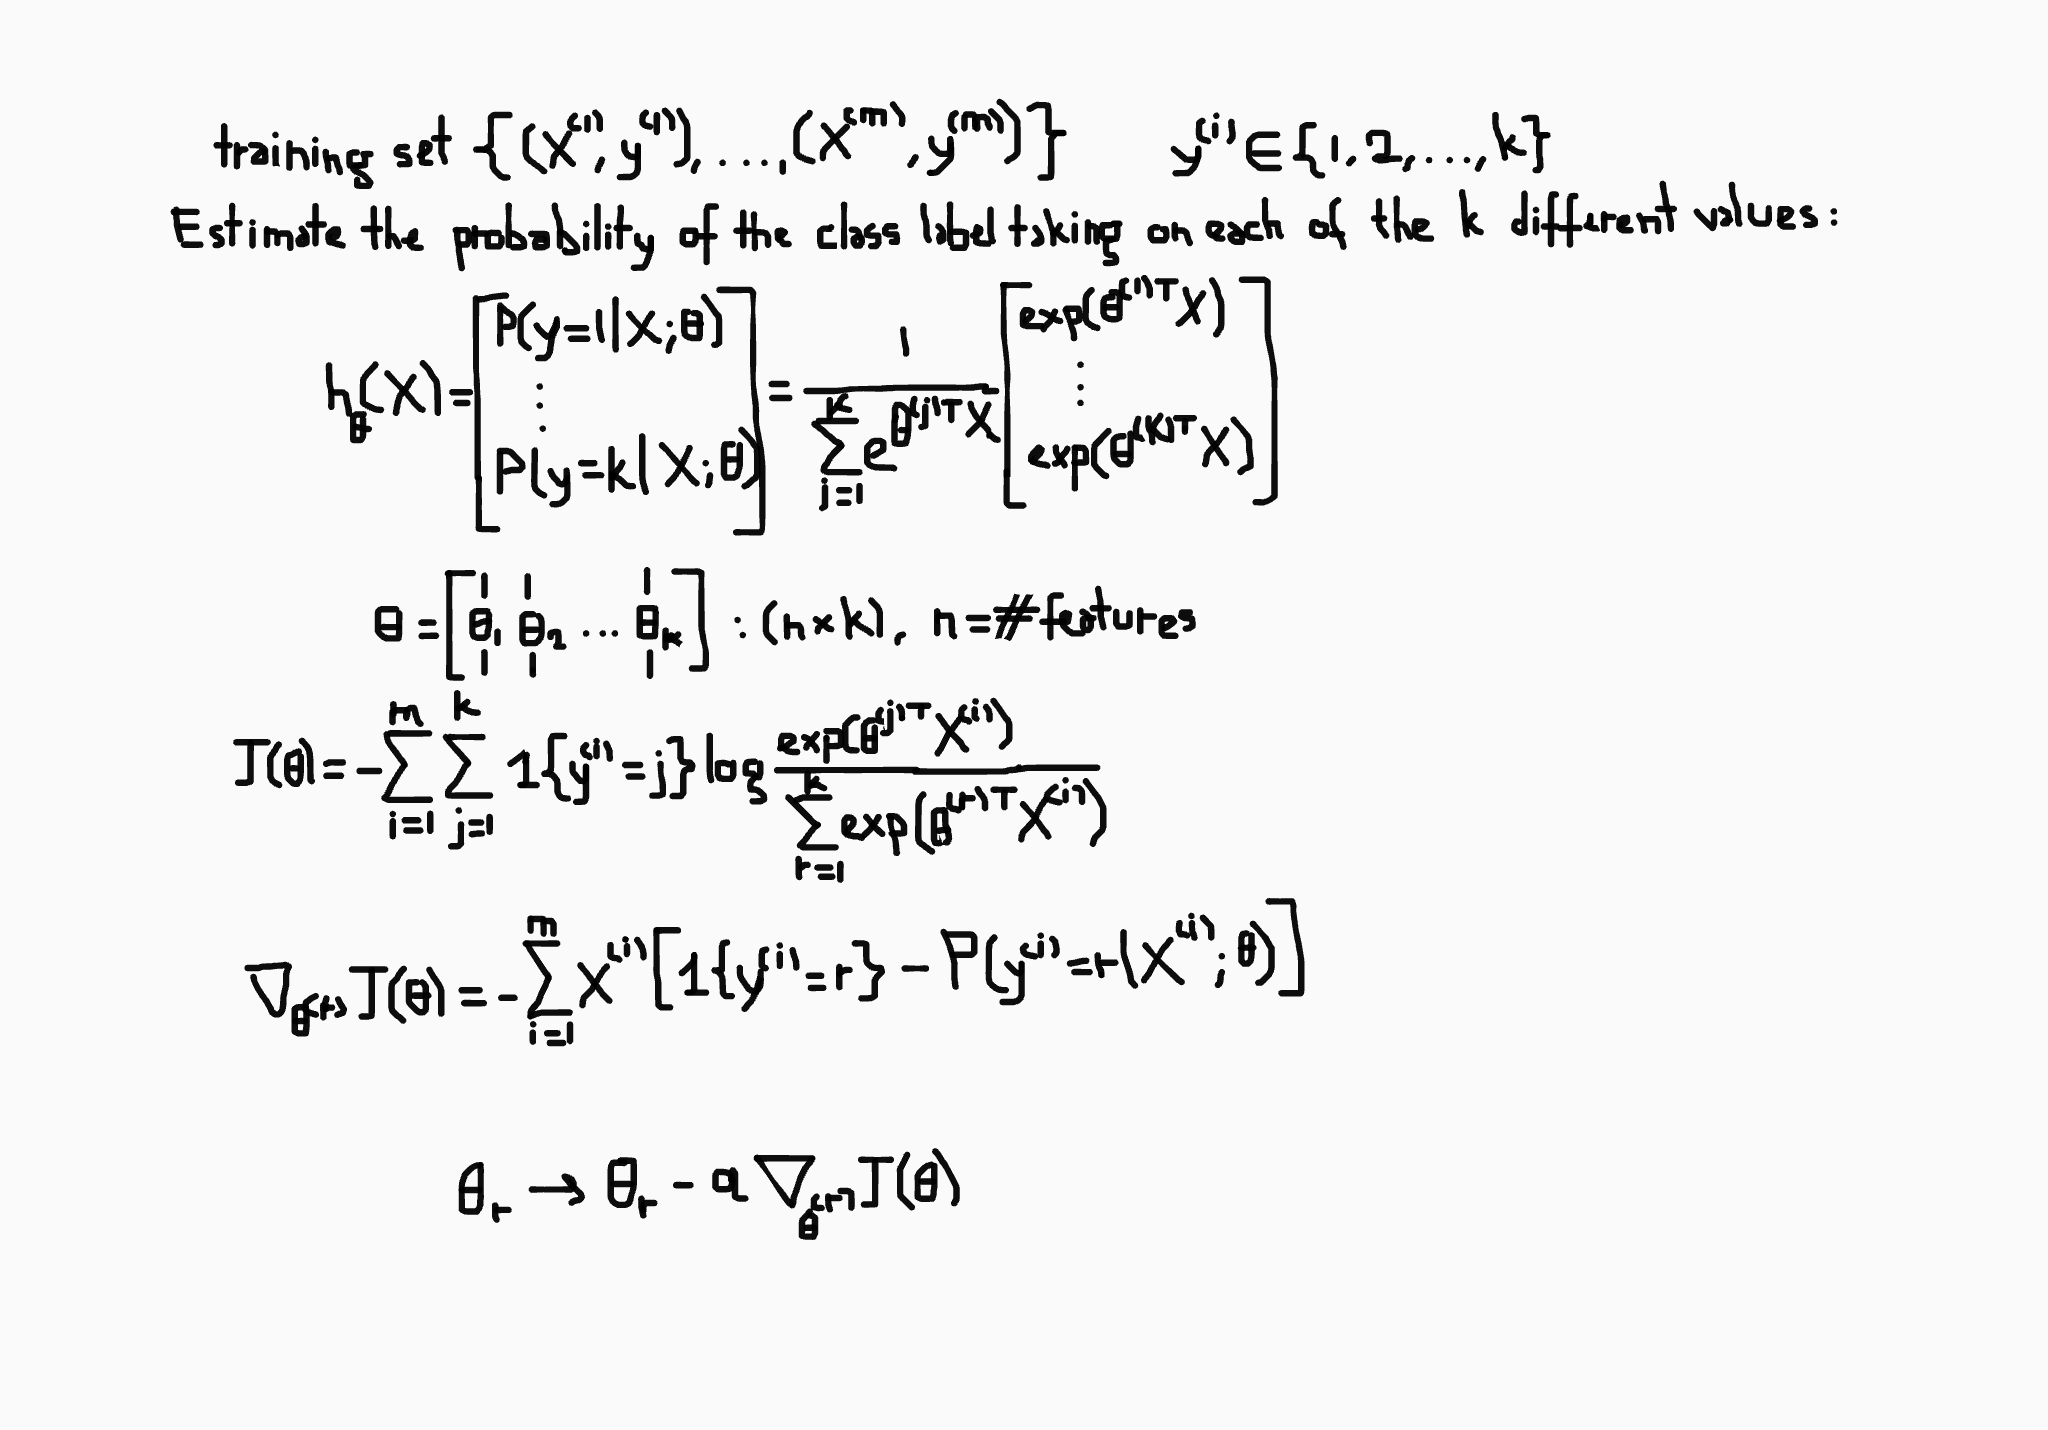 training set {(X⁽¹⁾, y⁽¹⁾), ...., (X⁽ᵐ⁾, y⁽ᵐ⁾)}    y⁽ⁱ⁾ ∈ {1, 2, ...., k}
Estimate the probability of the class label taking on each of the k different values:
h_θ(X) = [P(y=1|X;θ) ⋮ P(y=k|X;θ)] = 1 / (∑_{j=1}^{k} e^{θ^{(j)T} X}) [exp(θ^{(1)T} X) ⋮ exp(θ^{(k)T} X)]
θ = [θ₁ θ₂ ... θ_k] : (n×k), n = #features
J(θ) = -∑_{i=1}^{m} ∑_{j=1}^{k} 1{y⁽ⁱ⁾ = j} log exp(θ^{(j)T} X⁽ⁱ⁾) / ∑_{r=1}^{k} exp(θ^{(r)T} X⁽ⁱ⁾)
∇_{θ^{(r)}} J(θ) = -∑_{i=1}^{m} X⁽ⁱ⁾ [1{y⁽ⁱ⁾ = r} - P(y⁽ⁱ⁾ = r|X⁽ⁱ⁾; θ)]
θ_r → θ_r - a ∇_{θ^{(r)}} J(θ)